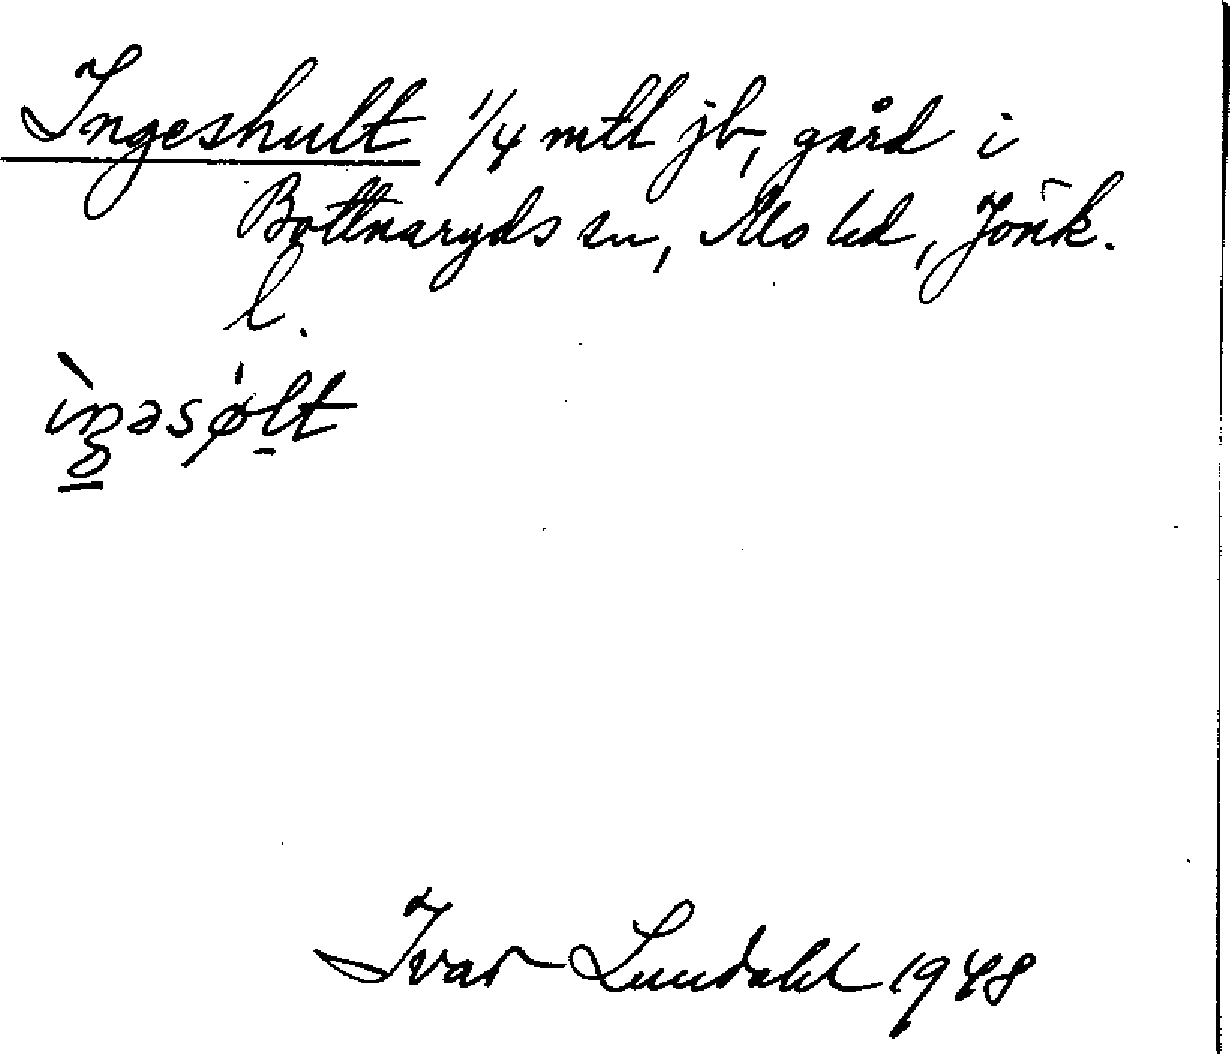 Ingeshult 1/4 mtl jb, gård i
Bottnaryds sn, Mo hd, Jönk.
l.
ìŋəsø̍lt
Ivar Lundahl 1948